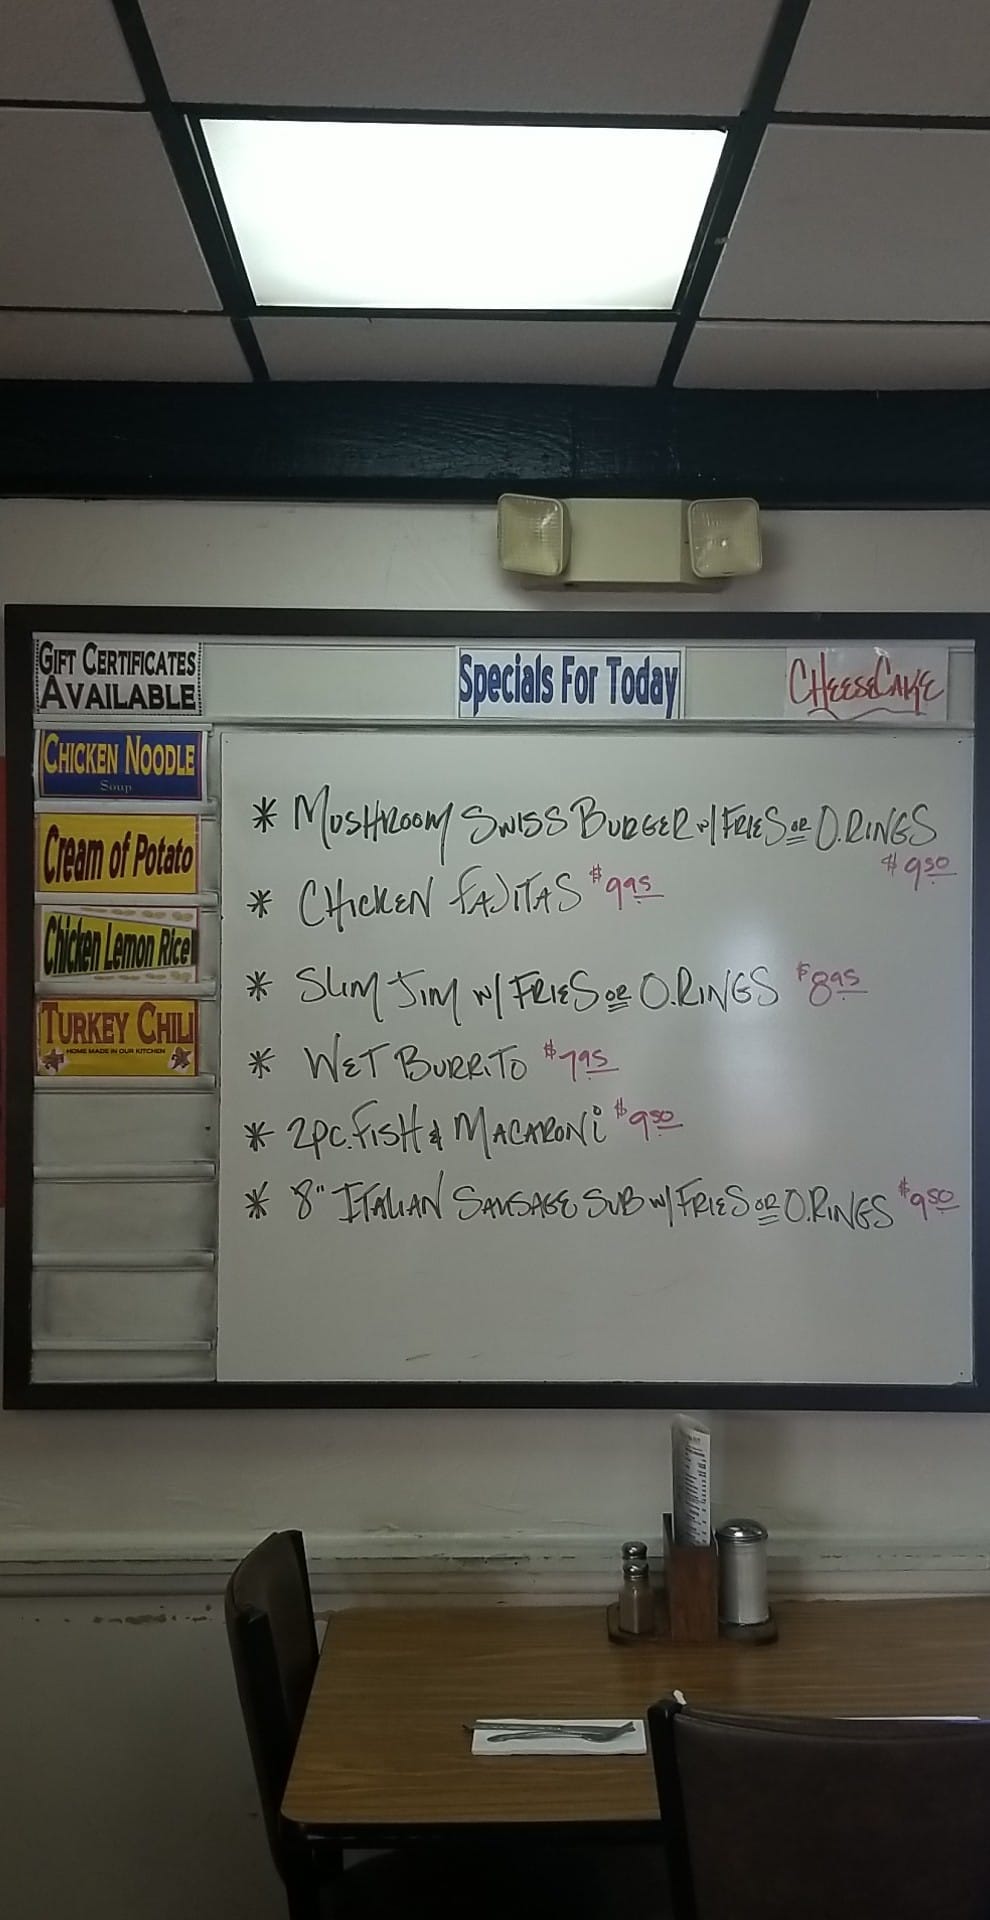 GIFT CERTIFICATES
AVAILABLE
Specials For Today
CHEESECAKE
CHICKEN NOODLE
Soup
Cream of Potato
Chicken Lemon Rice
TURKEY CHILI
HOME MADE IN OUR KITCHEN
* MUSHROOM SWISS BURGER w/ FRIES OR O.RINGS
$9.50
* CHICKEN FAJITAS $9.95
* SLIM JIM w/ FRIES OR O.RINGS $8.95
* WET BURRITO $7.95
* 2PC. FISH & MACARONI $9.50
* 8" ITALIAN SAUSAGE SUB w/ FRIES OR O.RINGS $9.50